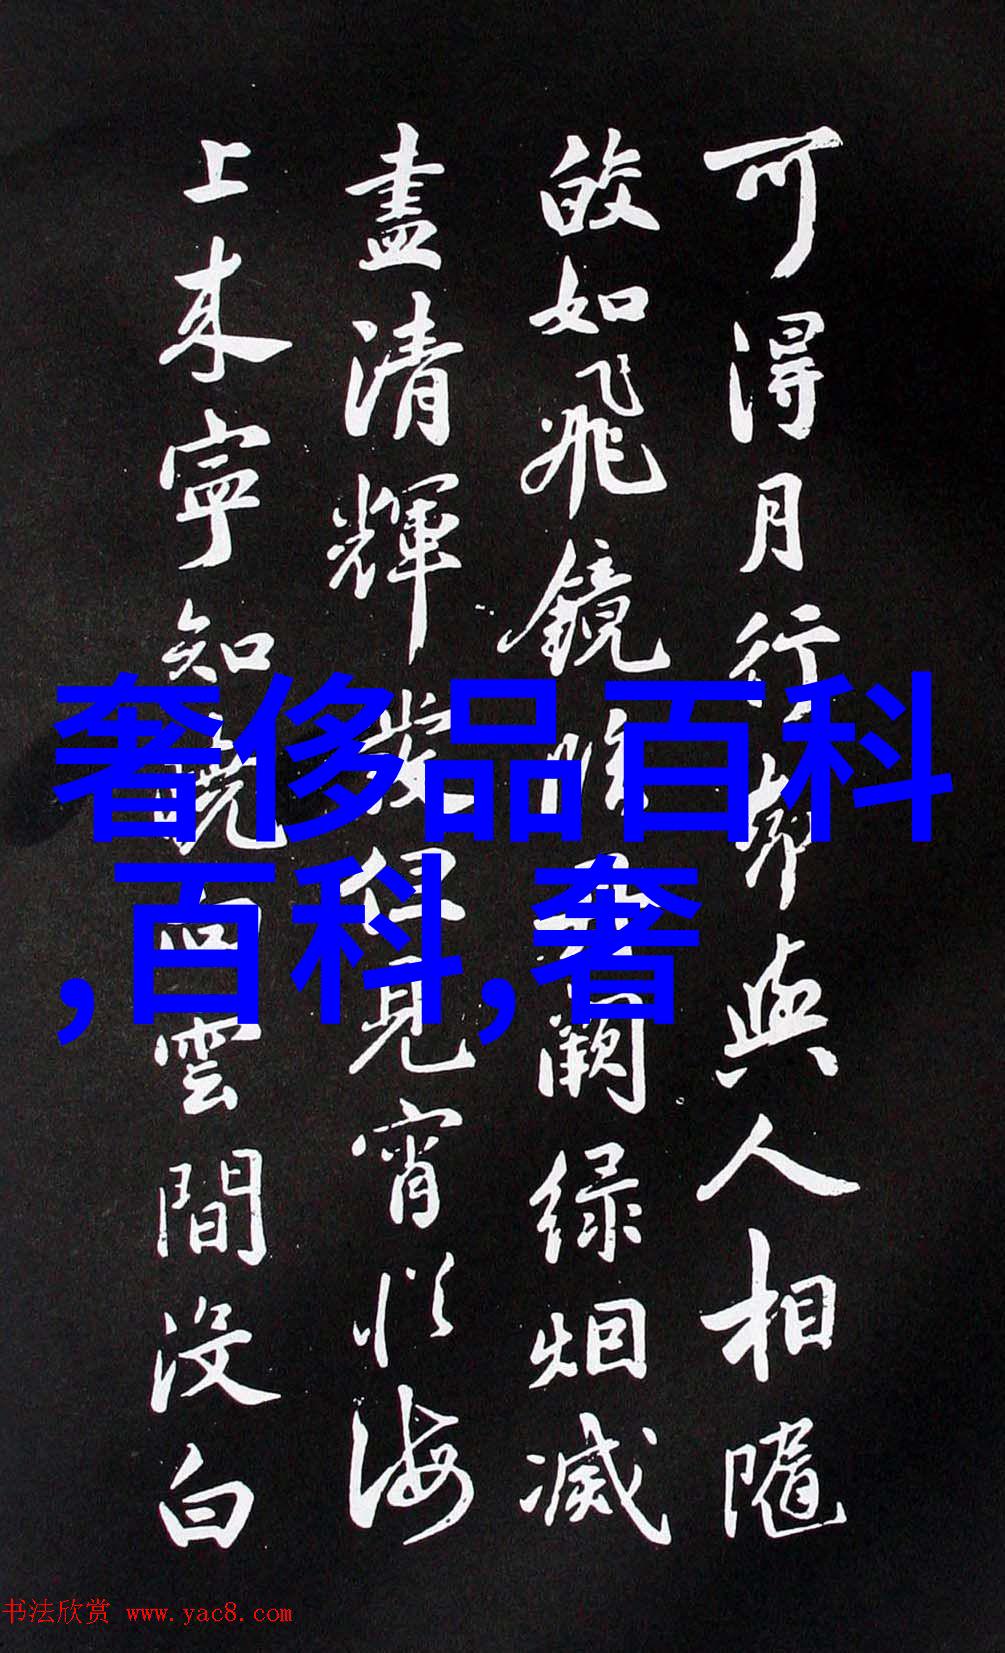 可得月行却與人相隨
皎如飛鏡臨丹闕綠烟滅
盡清輝發但見宵從海
上來寧知曉向雲間没白
奢侈品百科
,百科,奢
书法欣赏 www.yac8.com